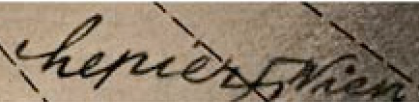 hepier, Wien